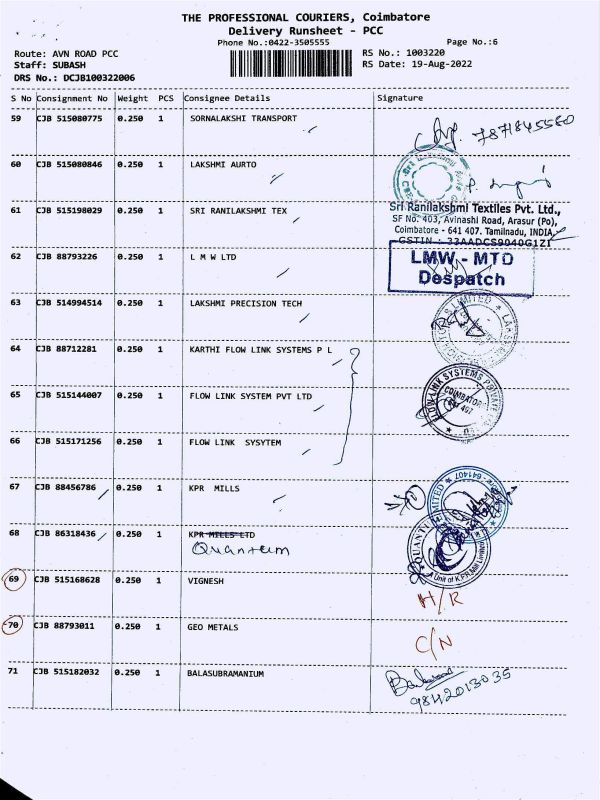 THE PROFESSIONAL COURIERS, Coimbatore
Delivery Runsheet - PCC
Phone No.:0422-3505555
Page No.:6
Route: AVN ROAD PCC
RS No.: 1003220
Staff: SUBASH
RS Date: 19-Aug-2022
DRS No.: DCJB100322006
S No Consignment No Weight PCS Consignee Details Signature
59 CJB 515080775 0.250 1 SORNALAKSHI TRANSPORT
7871845580
60 CJB 515080846 0.250 1 LAKSHMI AURTO
61 CJB 515198029 0.250 1 SRI RANILAKSHMI TEX
Sri Ranilakshmi Textiles Pvt. Ltd.,
SF No. 403, Avinashi Road, Arasur (Po),
Coimbatore - 641 407. Tamilnadu, INDIA
GSTIN : 33AADCS9040G1ZI
62 CJB 88793226 0.250 1 L M W LTD
LMW - MTD
Despatch
63 CJB 514994514 0.250 1 LAKSHMI PRECISION TECH
64 CJB 88712281 0.250 1 KARTHI FLOW LINK SYSTEMS P L
65 CJB 515144007 0.250 1 FLOW LINK SYSTEM PVT LTD
FLOW LINK SYSTEMS PRIVATE
COIMBATORE
641 407
66 CJB 515171256 0.250 1 FLOW LINK SYSYTEM
67 CJB 88456786 0.250 1 KPR MILLS
LIMITED
641407
68 CJB 86318436 0.250 1 KPR MILLS LTD
Quantum
QUANTUM
A Unit of K.P.R. Mill Limited
69 CJB 515168628 0.250 1 VIGNESH
H/R
70 CJB 88793011 0.250 1 GEO METALS
C/N
71 CJB 515182032 0.250 1 BALASUBRAMANIUM
9842013035